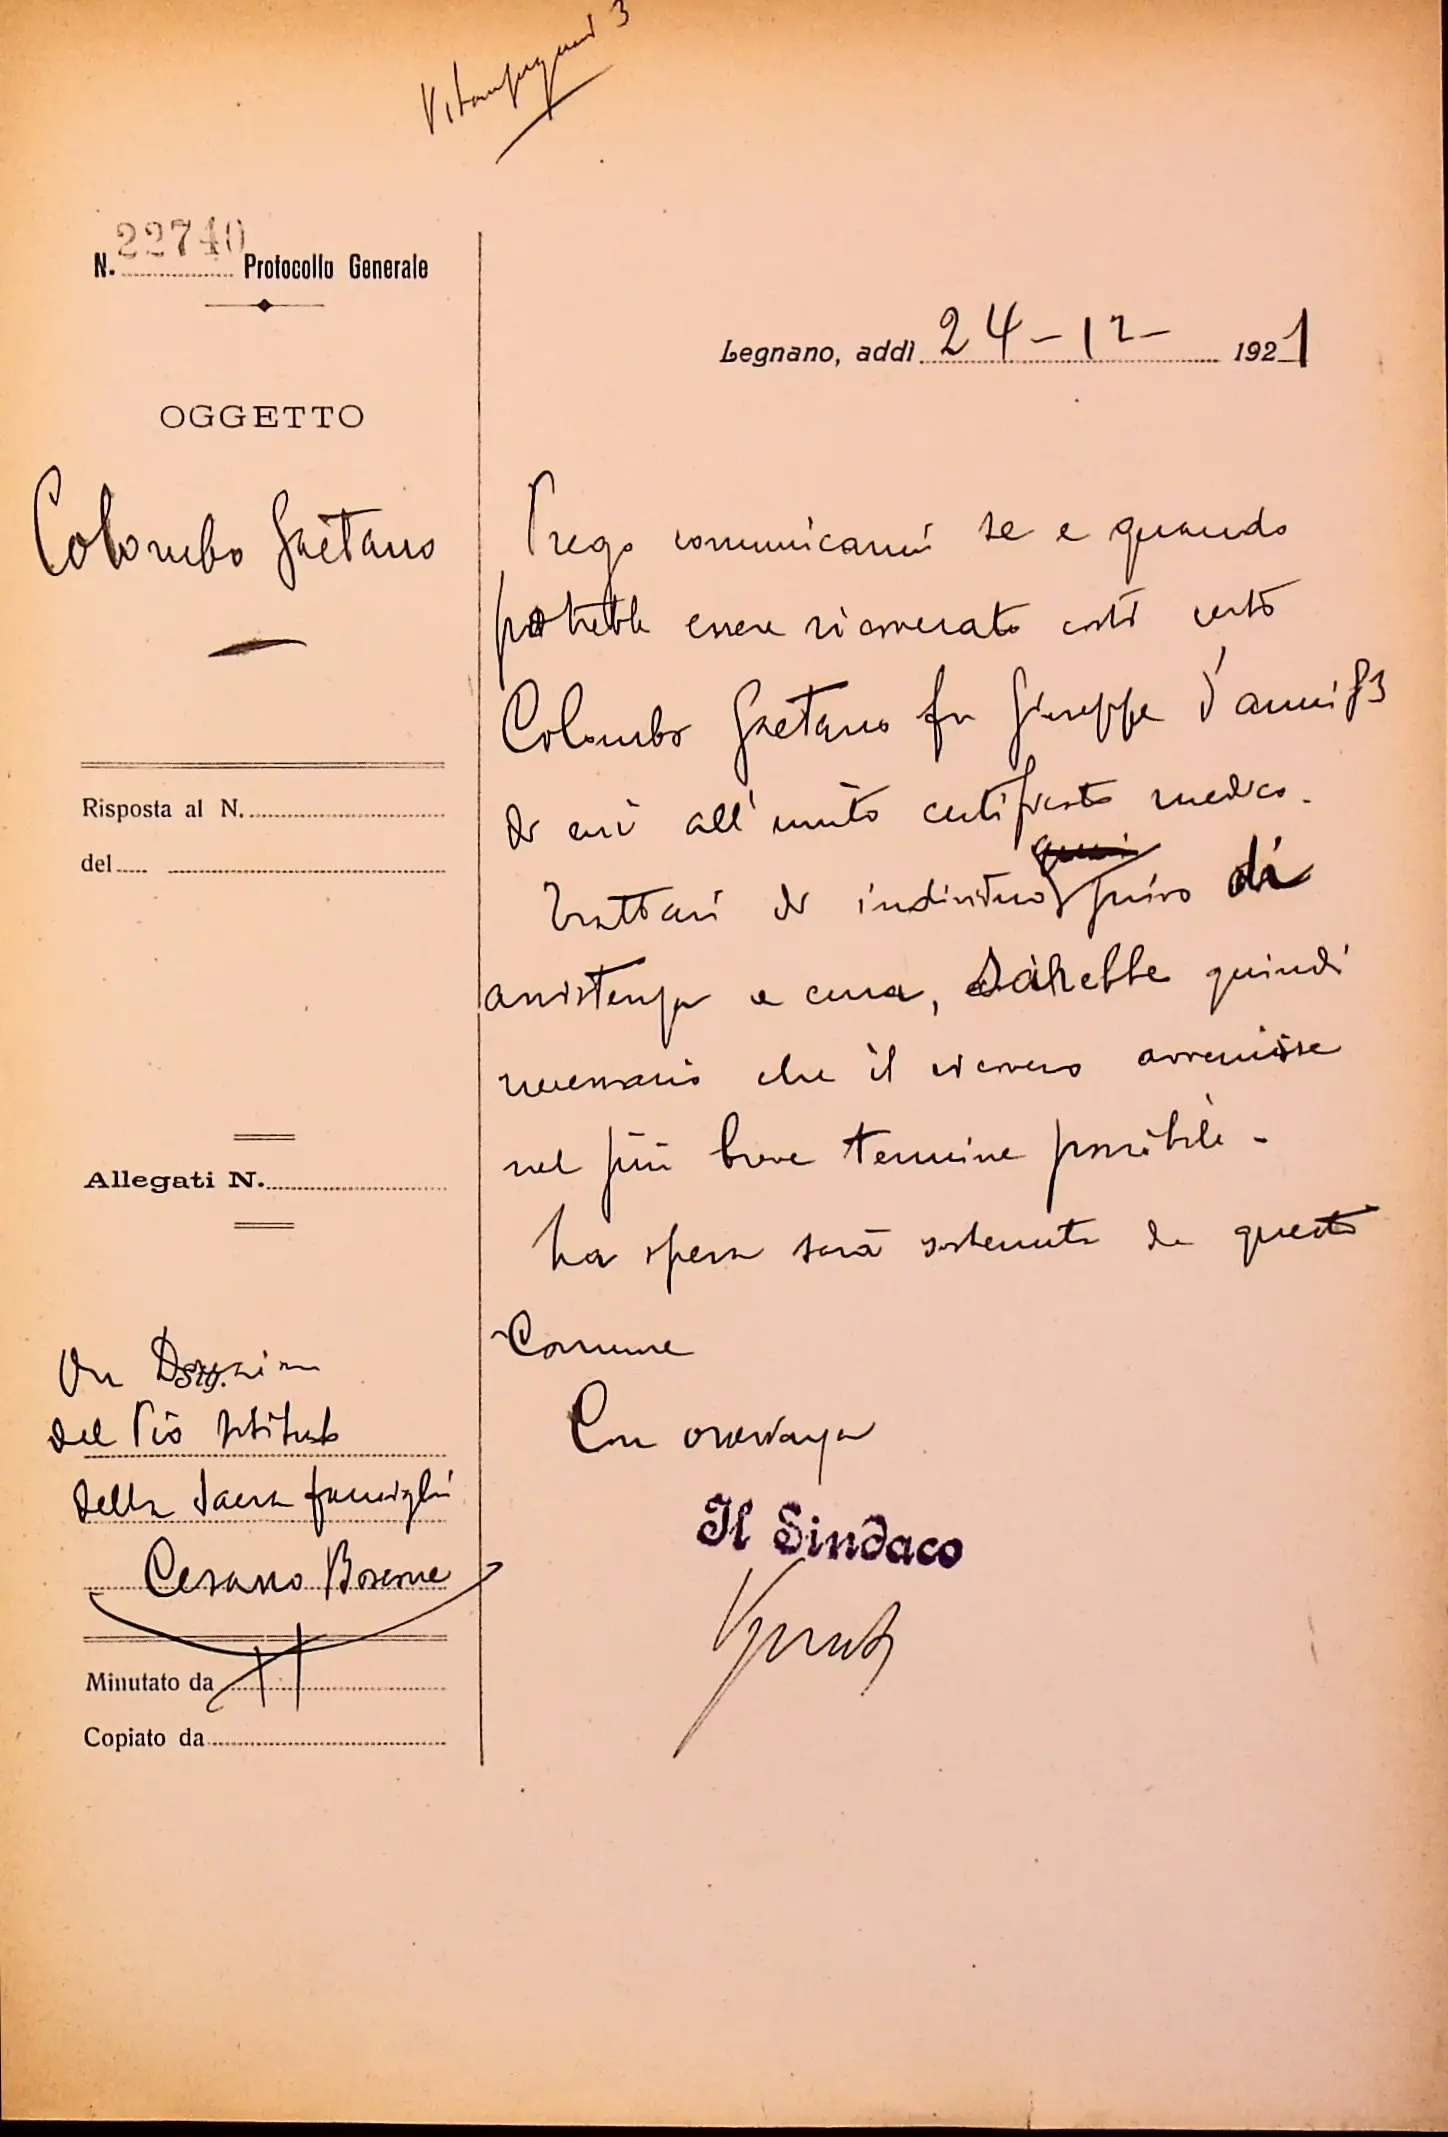 N. 22740 Protocollo Generale
OGGETTO
Colombo Gaetano
Risposta al N.
del
Allegati N.
On Direzione
Sig.
del Pio Istituto
della Sacra famiglia
Cesano Boscone
Minutato da
Copiato da
Legnano, addì 24-12- 1921
Prego comunicarmi se e quando
potrebbe essere ricoverato costì certo
Colombo Gaetano fu Giuseppe d'anni 83
di cui all'unito certificato medico.
Trattasi di individuo privo di
assistenza e cura, sarebbe quindi
necessario che il ricovero avvenisse
nel più breve termine possibile -
La spesa sarà sostenuta da questo
Comune
Con osservanza
Il Sindaco